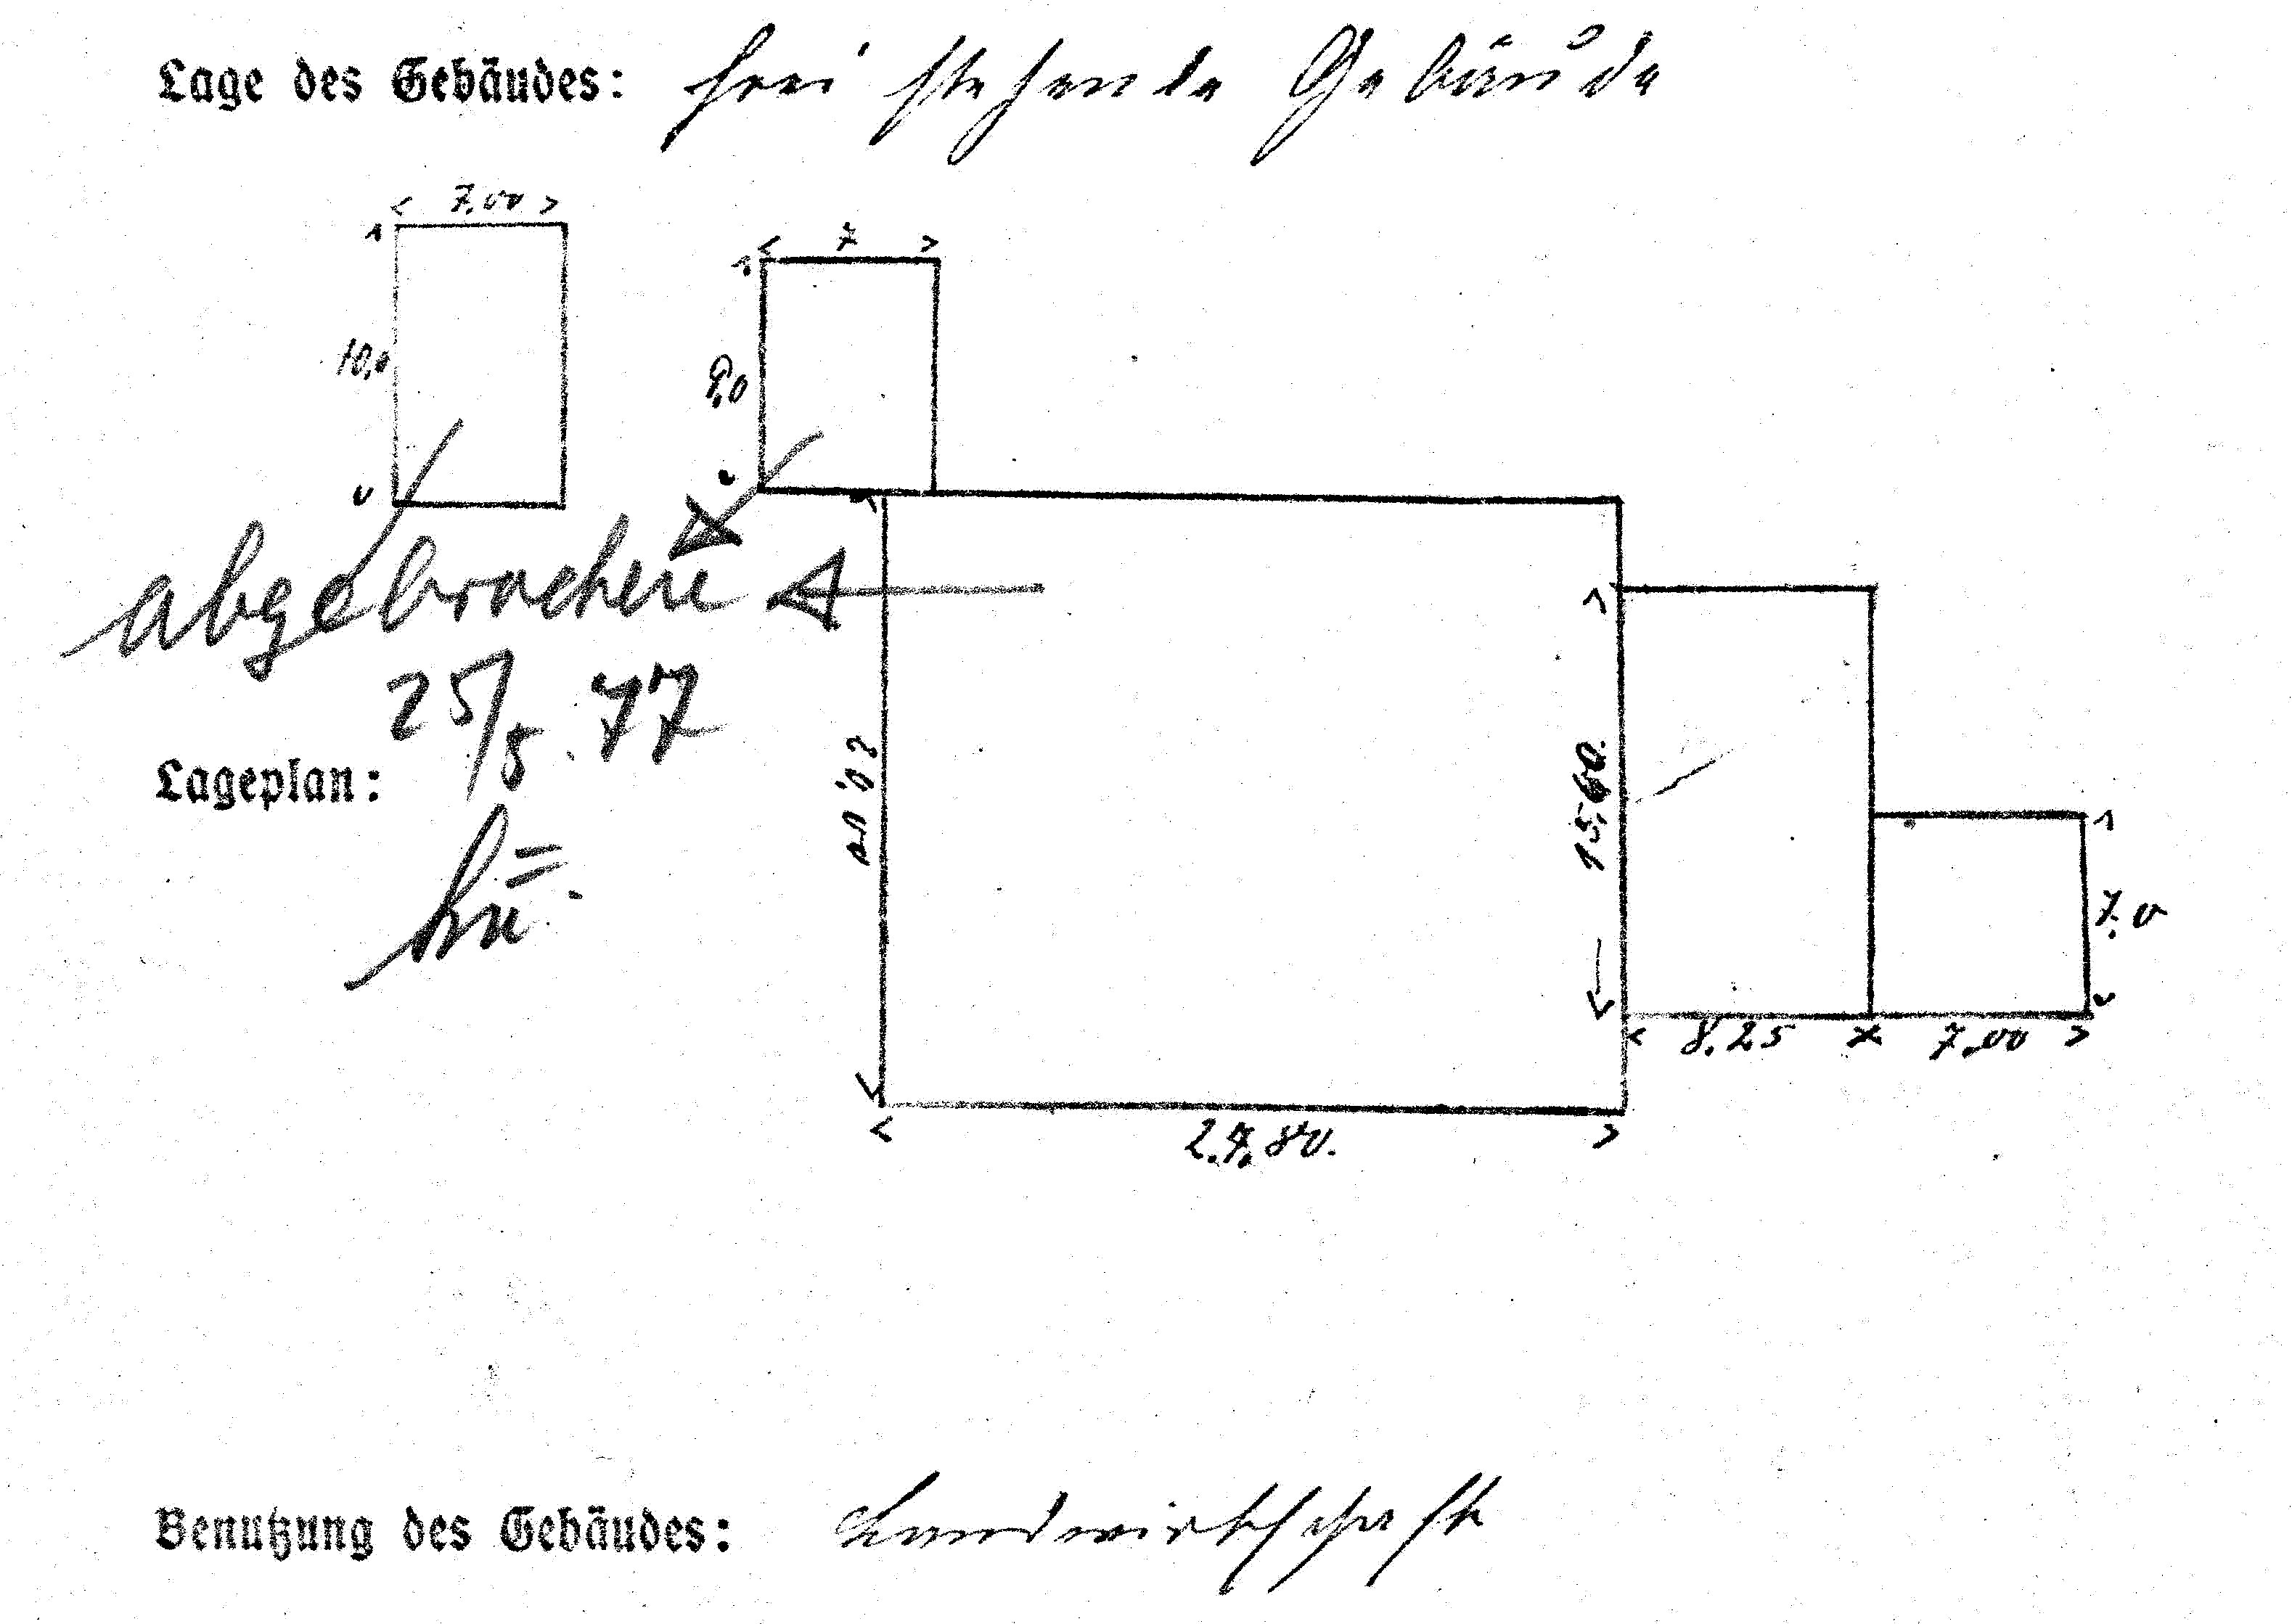 Lage des Gebäudes: frei stehende Gebäude
7,00
7
10,0
9,0
abgebrochen
25/8.77
20,00
15,60.
Lageplan:
7.0
8.25 7,00
24,80.
Benutzung des Gebäudes: Landwirtschaft